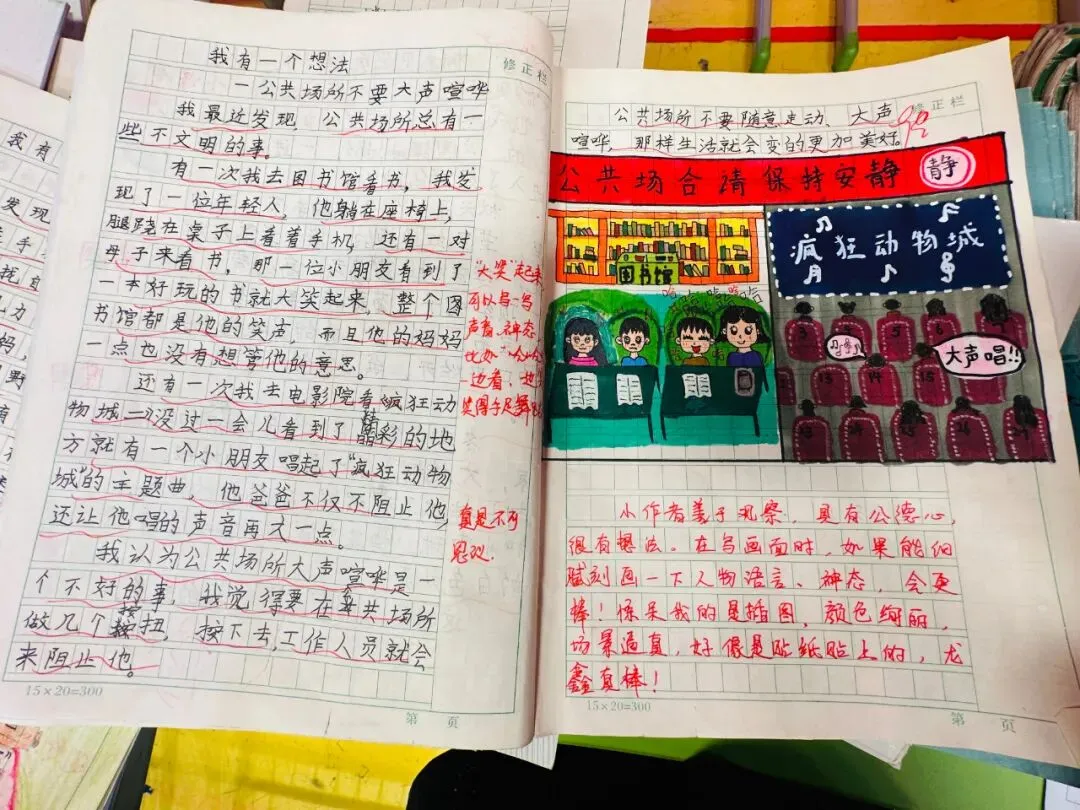 我有一个想法
修正栏
—公共场所不要大声喧哗
我最近发现,公共场所总有一
些不文明的事。
有一次我去图书馆看书,我发
现了一位年轻人,他躺在座椅上,
腿跷在桌子上看着手机,还有一对
母子来看书,那一位小朋友看到了
一本好玩的书就大笑起来,整个图
书馆都是他的笑声,而且他的妈妈
一点也没有想管他的意思。
还有一次我去电影院看《疯狂动
物城二》没过一会儿看到了精彩的地
方就有一个小朋友唱起了"疯狂动物
城"的主题曲,他爸爸不仅不阻止他,
还让他唱的声音再大一点。
我认为公共场所大声喧哗是一
个不好的事,我觉得要在公共场所
做几个按扭,按下去,工作人员就会
来阻止他。
15×20=300
第 页
"大笑"起来
可以写一写
声音、神态
比如"哈哈哈"
一边看,一边
笑围手足舞
真是不可
思议.
修正栏
公共场所不要随意走动、大声
喧哗,那样生活就会变的更加美好。
公共场合请保持安静
静
图书馆
哈哈哈哈
疯狂动物城
大声唱!!
3
4
5
6
13
14
15
小作者善于观察,具有公德心,
很有想法。在写画面时,如果能细
腻刻画一下人物语言、神态,会更
棒!惊呆我的是插图,颜色绚丽,
场景逼真,好像是贴纸贴上的,龙
鑫真棒!
15×20=300
第 页
我有
发现